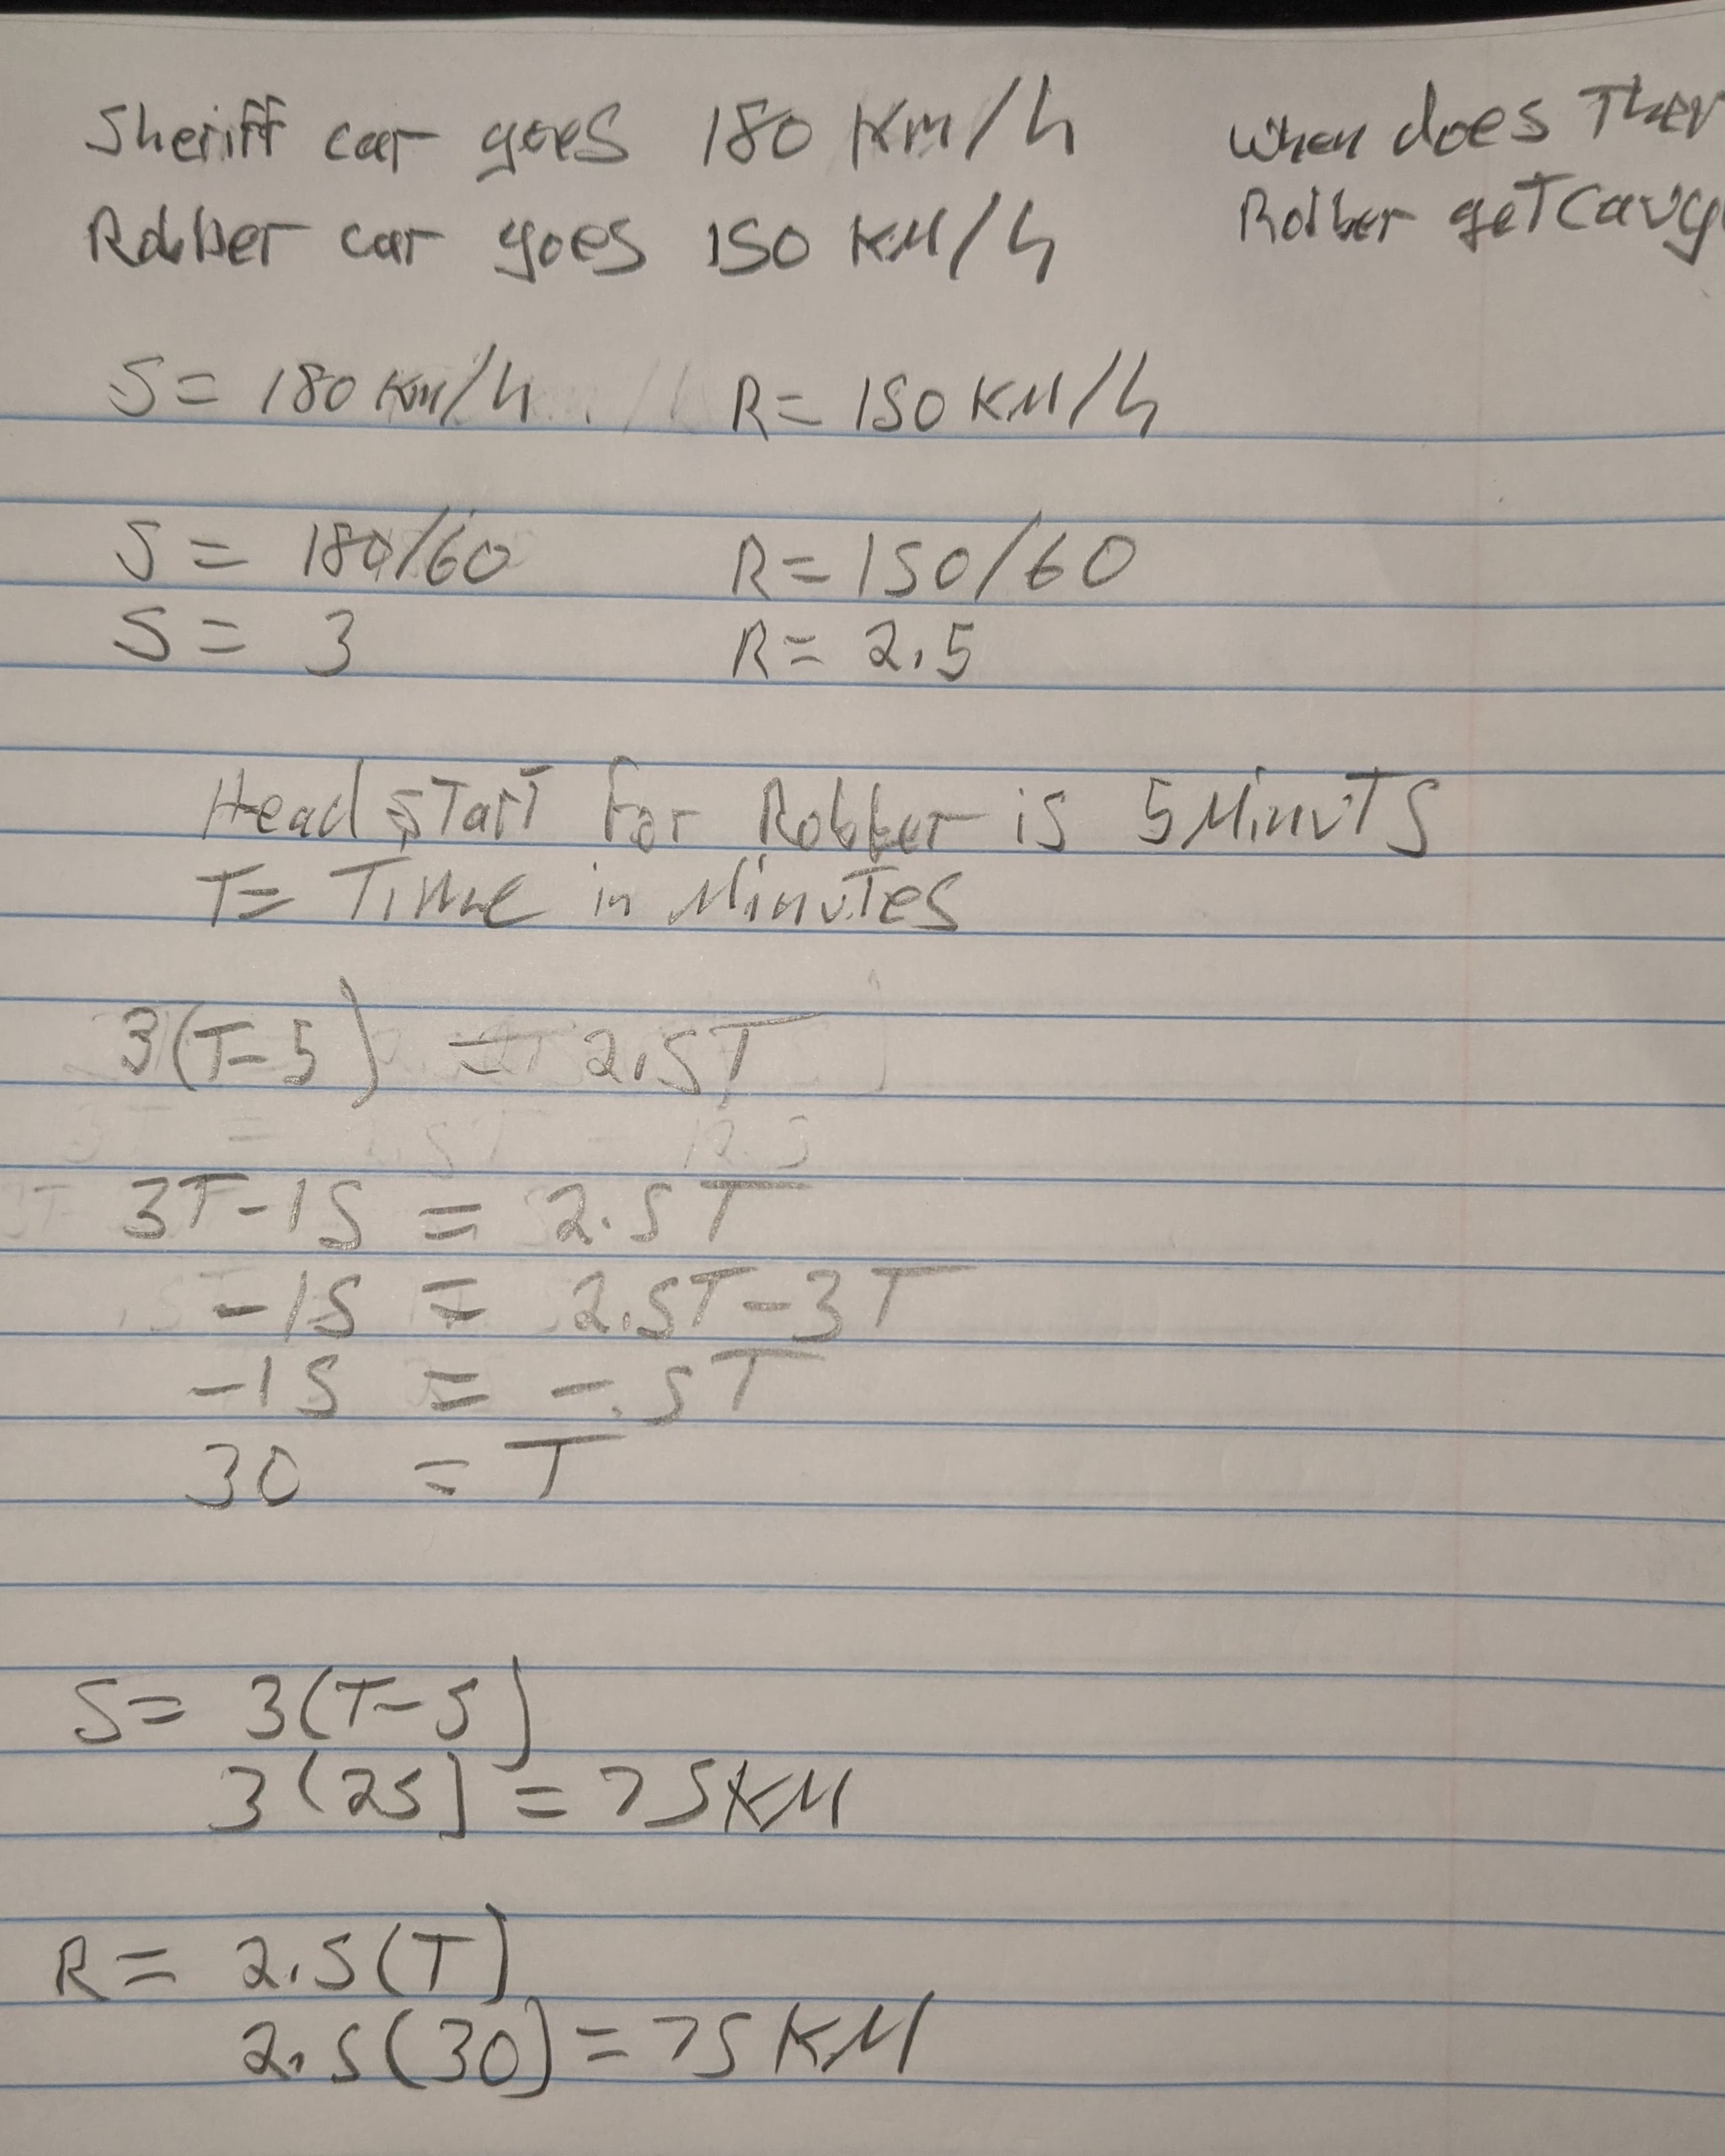 Sheriff car goes 180 Km/h
Robber car goes 150 KM/h
When does The
Robber get
S = 180 Km/h
R = 150 KM/h
S = 180/60
R = 150/60
S = 3
R = 2.5
Head start For Robber is 5 MinuTS
T = Time in MinuTes
3(T-5) = 2.5T
3T-15 = 2.5T
-15 = 2.5T-3T
-15 = -.5T
30 = T
S = 3(T-5)
3(25) = 75KM
R = 2.5(T)
2.5(30) = 75 KM